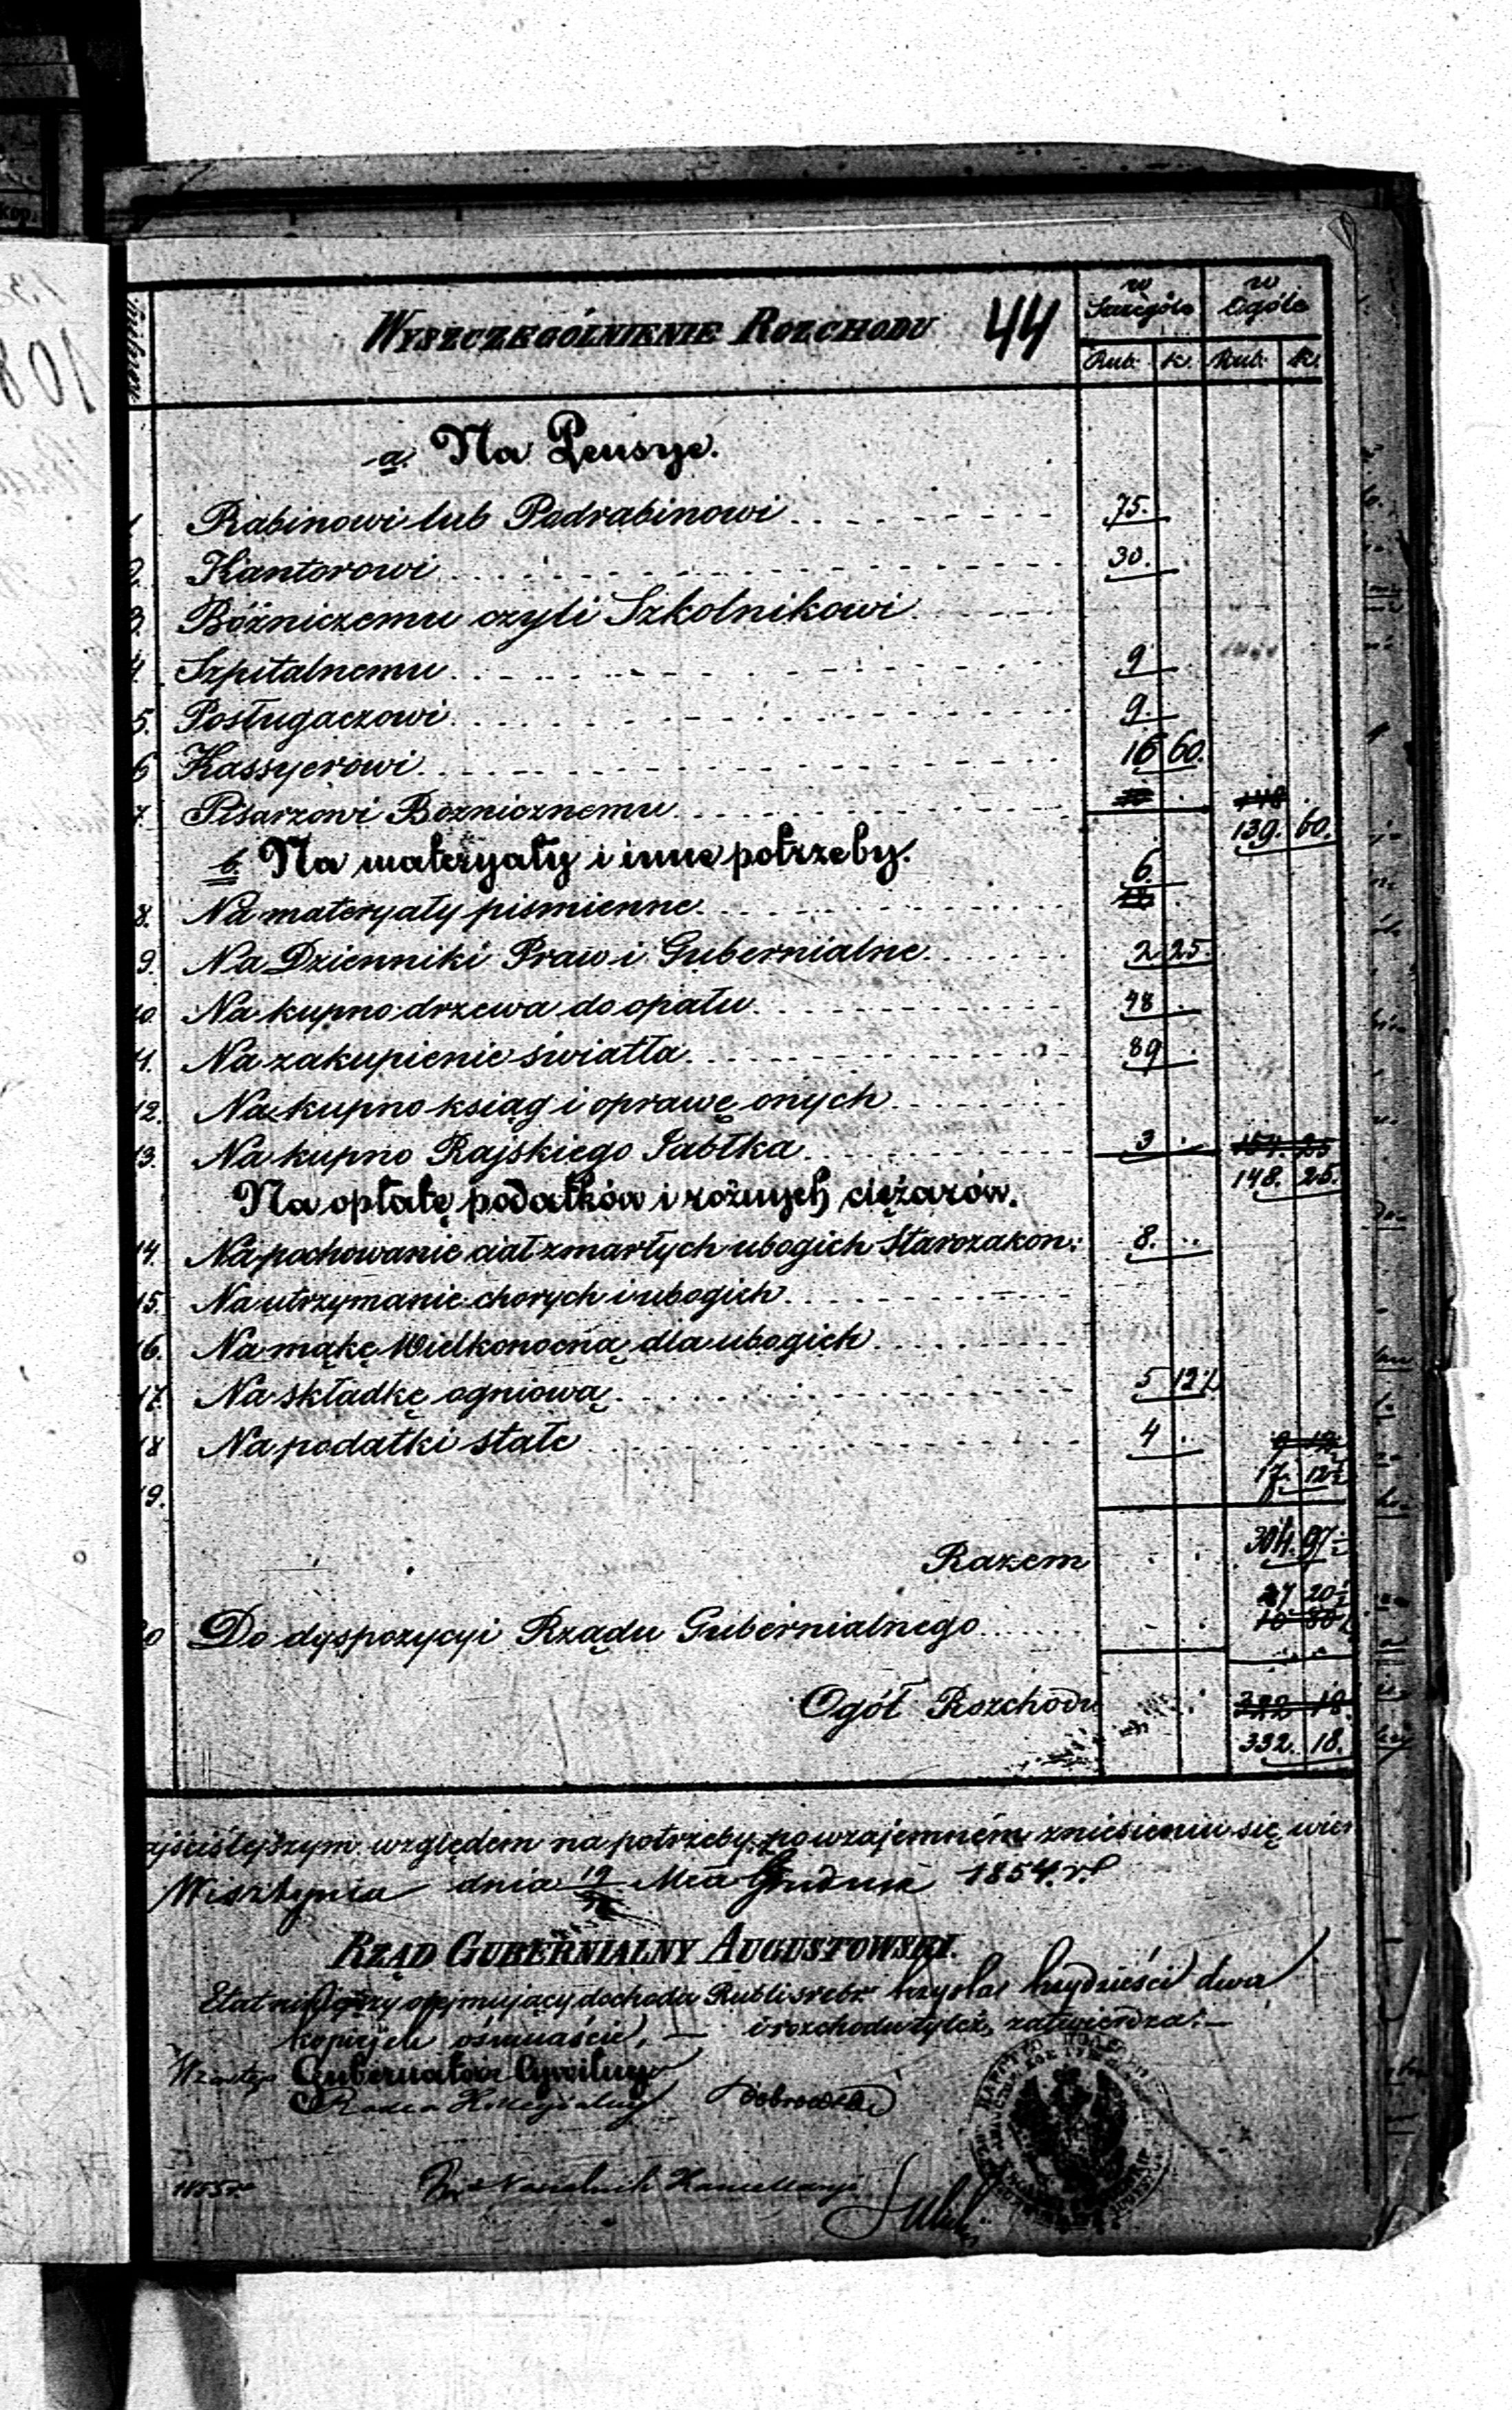 WYSZCZEGÓLNIENIE ROZCHODU 44
w Szczególe w Ogóle
Rub. k. Rub. k.
a. Na Pensye.
1. Rabinowi lub Podrabinowi 75.
2. Kantorowi 30.
3. Bóżniczemu czyli Szkolnikowi
4. Szpitalnemu 9
5. Posługaczowi 9.
6 Kassyerowi 16 60.
7. Pisarzowi Boznicznemu
139. 60.
b. Na materyały i inne potrzeby.
8. Na materyały pismienne 6.
9. Na Dzienniki Praw i Gubernialne 2. 25.
10. Na kupno drzewa do opału 48
11. Na zakupienie światła 89
12. Na kupno ksiąg i oprawę onych
13. Na kupno Rajskiego Jabłka 3 154. 25
148. 25.
Na opłatę podatków i rożnych ciężarów.
14. Na pochowanie ciał zmarłych ubogich Starozakon: 8.
15. Na utrzymanie chorych i ubogich
16. Na mąkę Wielkonocną dla ubogich
17. Na składkę ogniową 5 12½
18 Na podatki stałe 4 9 12½
17. 12½
19.
Razem 304. 97½
27 20½
20 Do dyspozycyi Rządu Gubernialnego
Ogół Rozchodu 322 18.
332. 18.
ajściślejszym względem na potrzeby, po wzajemném zniesieniu się
Wisztynia dnia 19 Mca Grudnia 1854. r.
RZĄD GUBERNIALNY AUGUSTOWSKI.
Etat niniejszy obejmujący dochodu Rubli srebr: trzysta trzydzieści dwa
kopijek ośmnaście, — i rozchodu tyleż, zatwierdza. —
Gubernator Cywilny
Radca Kollegialny
1855 r.
Naczelnik Kancellaryi